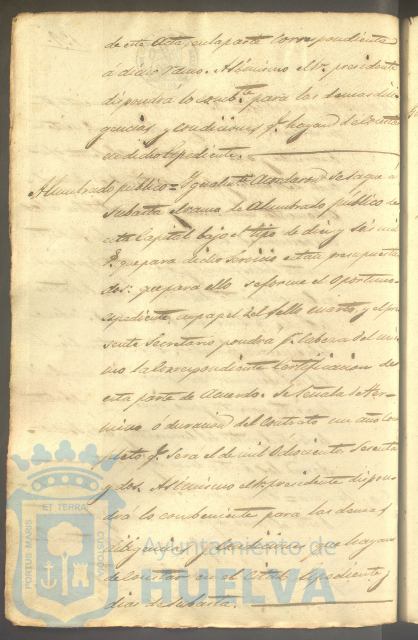 de este Acta, en la parte correspondiente
á dicho ramo. Asimismo el Sr. presidente
dispondra lo conbte. para las demas dili
gencias, y condiciones qe. hayan de constar
en dicho Espediente.
Alumbrado público = Igualmte. Acordaron se saque a
subasta el ramo de Alumbrado público de
esta Capital bajo el tipo de diez y seis mil
que para dicho servicio estan presupuesta
dos: que para ello se forme el oportuno
espediente, en papel del sello cuarto, y el pre
sente Secretario pondrá pr. cabeza del mis
mo la correspondiente Certificacion de
esta parte de Acuerdo. Se señala el ter
mino ó duracion del Contrato un año com
pleto qe. sera el de mil ochocientos sesenta
y dos. Asimismo el Sr. presidente dispon
dra lo conbeniente para las demas
diligencias y condiciones que hayan
de constar en el citado Espediente, y
dias de subasta.
PORTUS MARIS ET TERRAE CUSTODIA
Ayuntamiento de
HUELVA